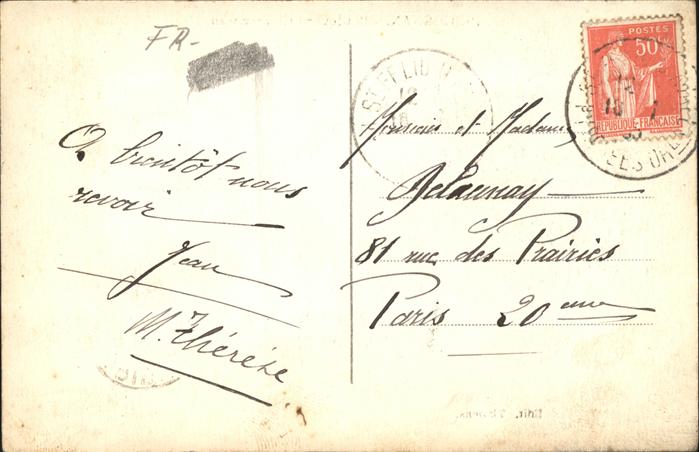 FR-
A bientôt nous
revoir
Jean
M. Thérèse
POSTES
50c
REPUBLIQUE FRANÇAISE
Monsieur et Madame
Delaunay
81 rue des Prairies
Paris 20eme
Edit.